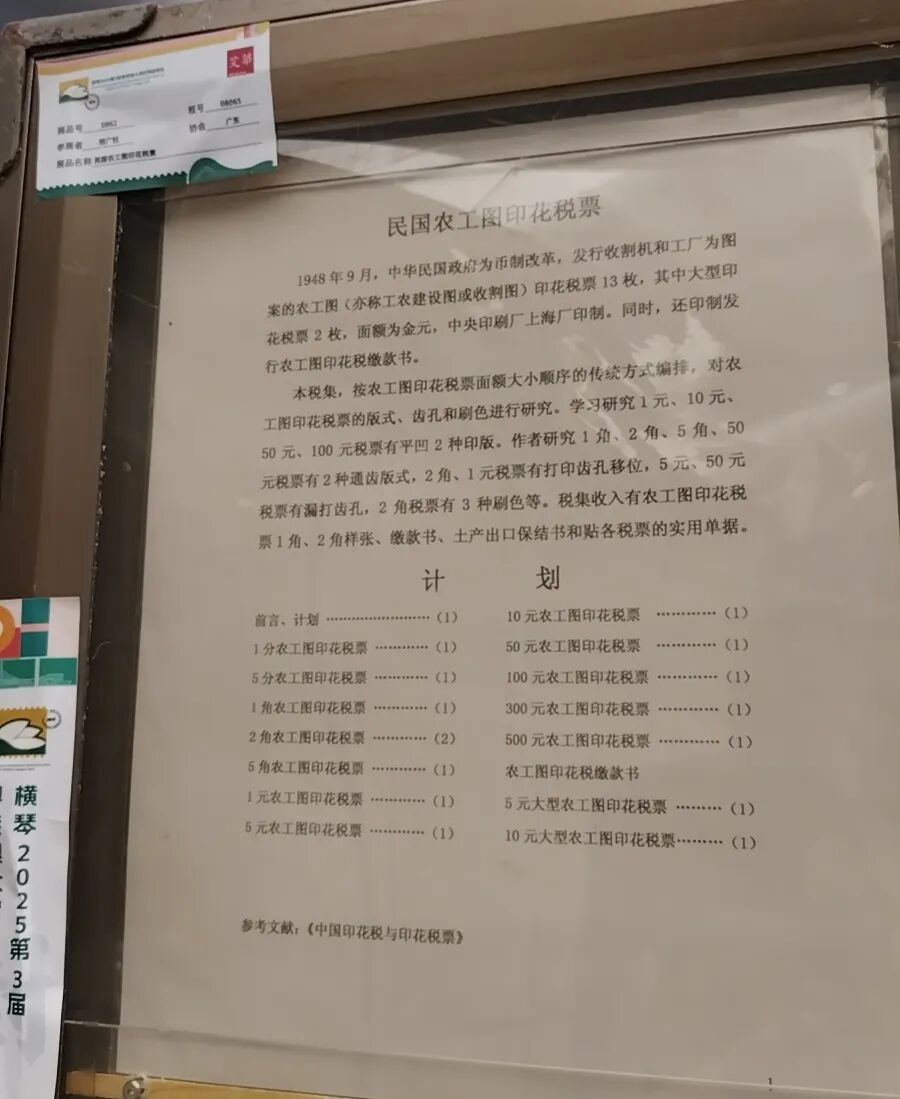 艾华
展品号 0862
框号 08065
参展者
协会 广东
展品名称 民国农工图印花税票
民国农工图印花税票
1948年9月，中华民国政府为币制改革，发行收割机和工厂为图
案的农工图（亦称工农建设图或收割图）印花税票13枚，其中大型印
花税票2枚，面额为金元，中央印刷厂上海厂印制。同时，还印制发
行农工图印花税缴款书。
本税集，按农工图印花税票面额大小顺序的传统方式编排，对农
工图印花税票的版式、齿孔和刷色进行研究。学习研究1元、10元、
50元、100元税票有平凹2种印版。作者研究1角、2角、5角、50
元税票有2种通齿版式，2角、1元税票有打印齿孔移位，5元、50元
税票有漏打齿孔，2角税票有3种刷色等。税集收入有农工图印花税
票1角、2角样张、缴款书、土产出口保结书和贴各税票的实用单据。
计 划
前言、计划 …………………（1）
1分农工图印花税票 …………（1）
5分农工图印花税票 …………（1）
1角农工图印花税票 …………（1）
2角农工图印花税票 …………（2）
5角农工图印花税票 …………（1）
1元农工图印花税票 …………（1）
5元农工图印花税票 …………（1）
10元农工图印花税票 …………（1）
50元农工图印花税票 …………（1）
100元农工图印花税票 …………（1）
300元农工图印花税票 …………（1）
500元农工图印花税票 …………（1）
农工图印花税缴款书
5元大型农工图印花税票 ………（1）
10元大型农工图印花税票………（1）
参考文献：《中国印花税与印花税票》
1
横琴2025第3届